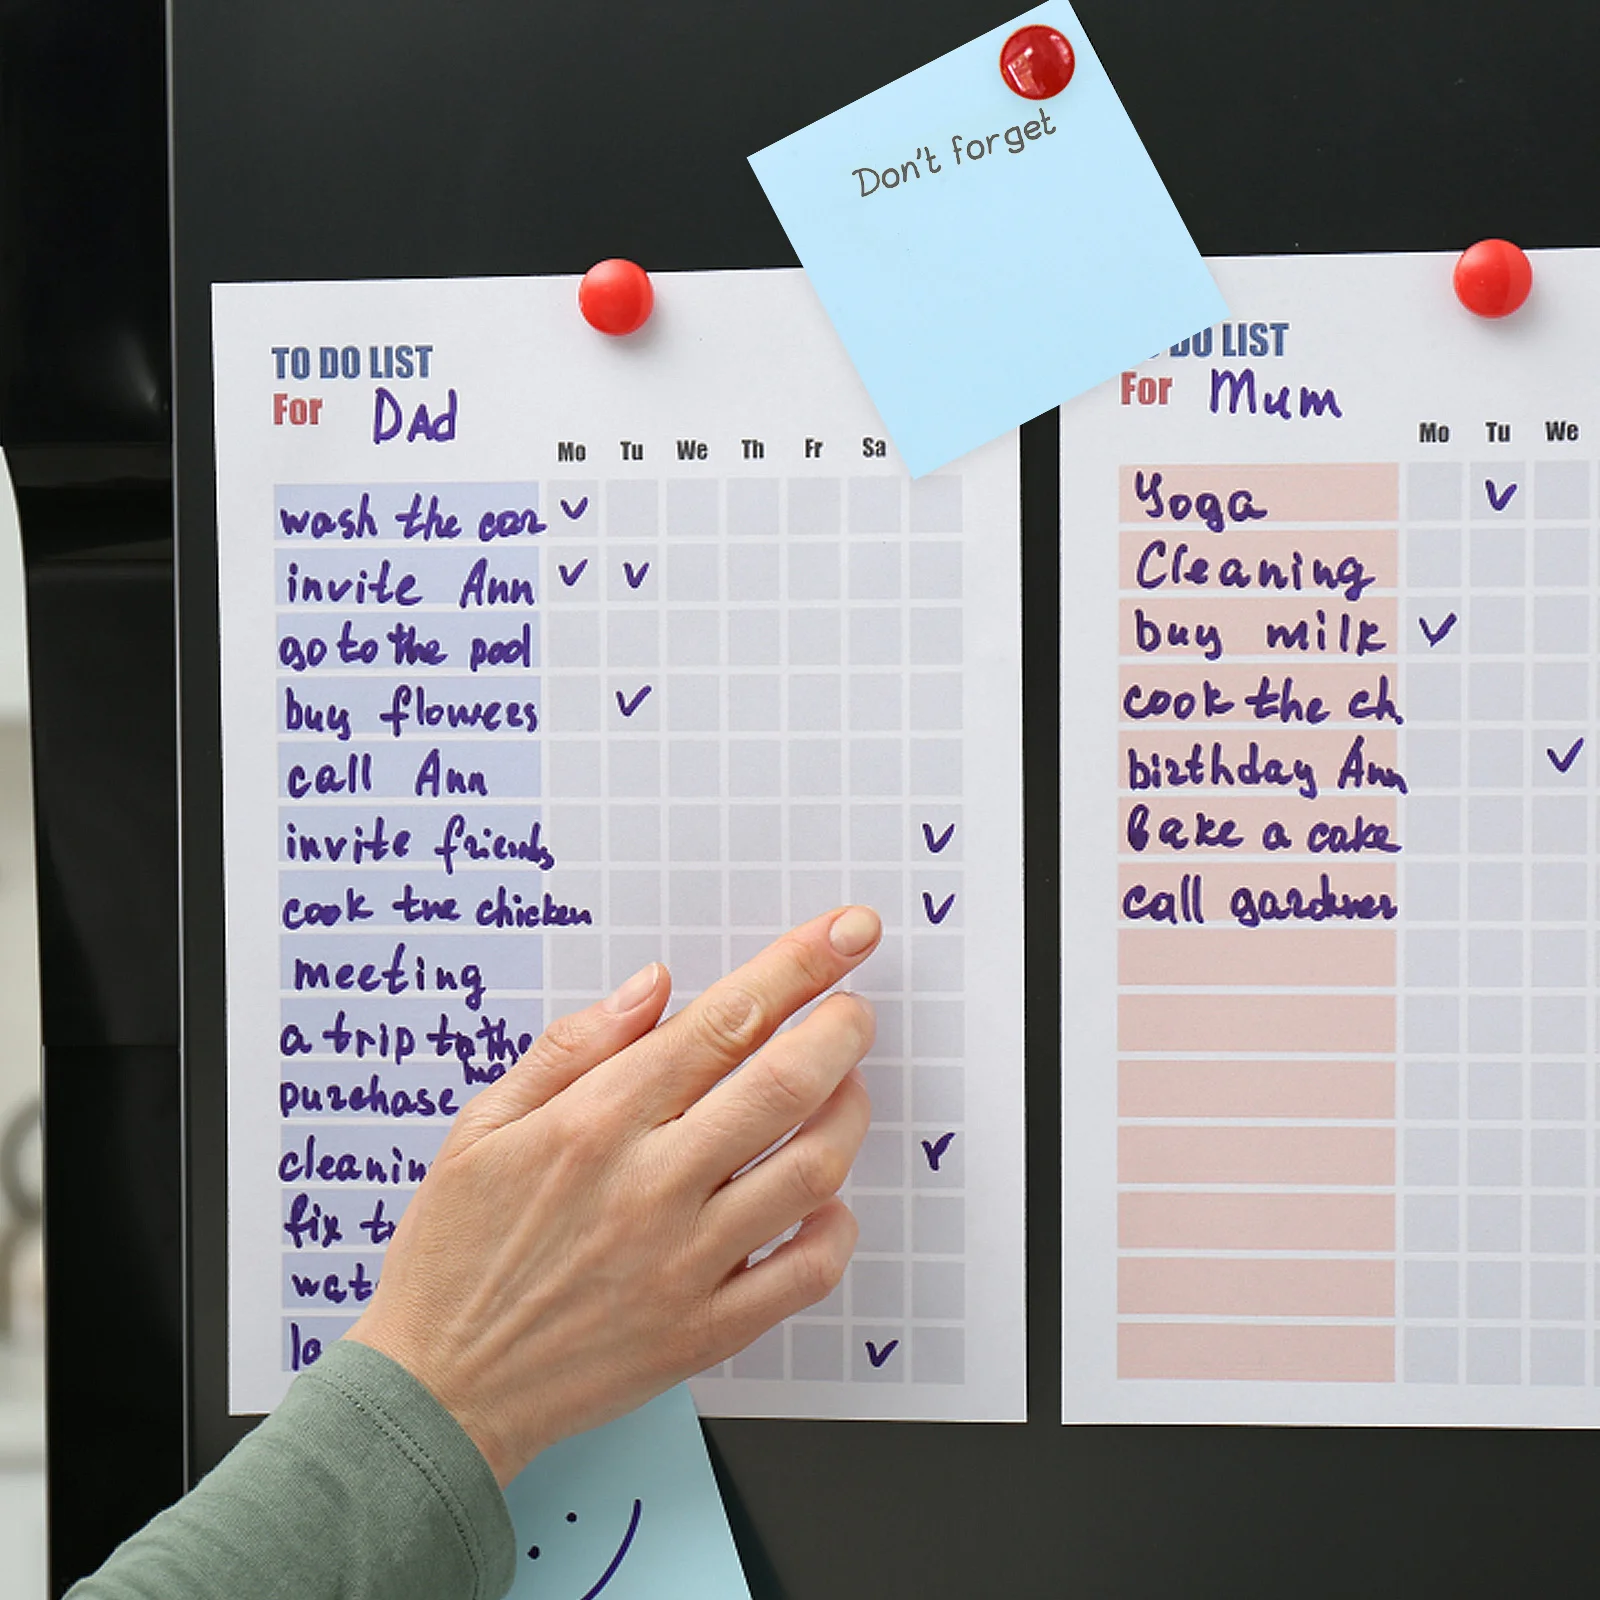 Don't forget
TO DO LIST
For Dad
Mo Tu We Th Fr Sa
wash the car
invite Ann
go to the pool
buy flowers
call Ann
invite friends
cook the chicken
meeting
a trip to the
purchase
fix
DO LIST
For Mum
Mo Tu We
Yoga
Cleaning
buy milk
cook the ch
birthday Ann
Bake a cake
call gardner